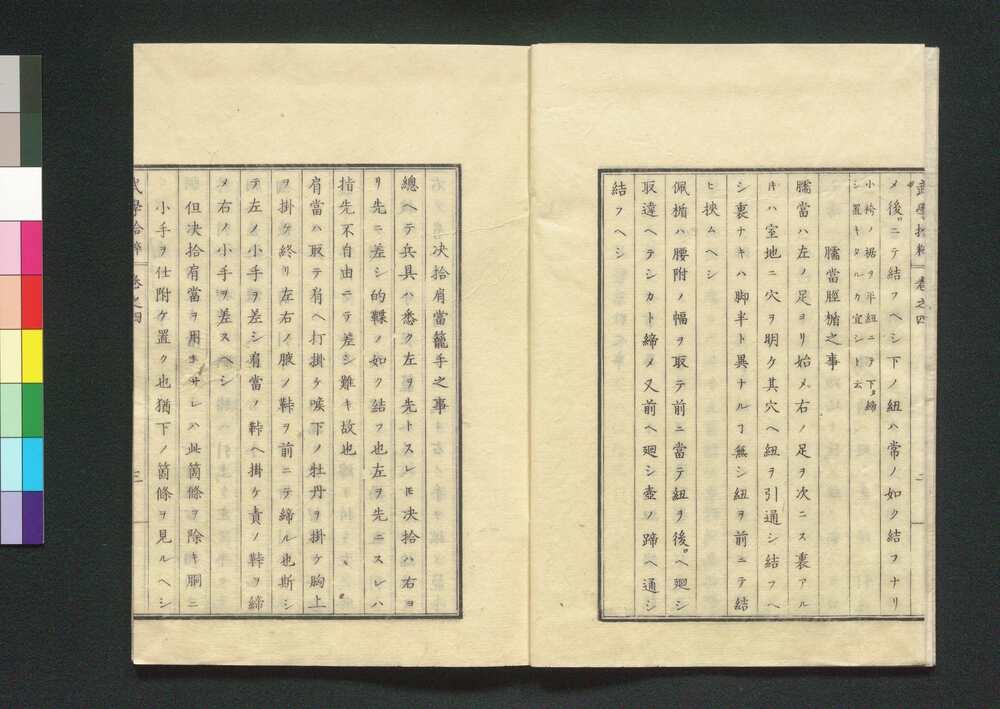 武學拾粹 卷之四
メ後ニテ結フヘシ下ノ紐ハ常ノ如ク結フナリ
小袴ノ裾ヲ平紐ニテ下ヲ締
シ置キタルカ宜シト云
臑當脛楯之事
臑當ハ左ノ足ヨリ始メ右ノ足ヲ次ニス裏アル
キハ室地ニ穴ヲ明ク其穴ヘ紐ヲ引通シ結フヘ
シ裏ナキハ脚半ト異ナルヿ無シ紐ヲ前ニテ結
ヒ挾ムヘシ
佩楯ハ腰附ノ幅ヲ取テ前ニ當テ紐ヲ後ヘ廻シ
取違ヘテシカト締メ又前ヘ廻シ壺ノ蹄ヘ通シ
結フヘシ
决拾肩當籠手之事
總ヘテ兵具ハ悉ク左ヲ先トスレ𪜈决拾ハ右ヨ
リ先ニ差シ的鞢ノ如ク結フ也左ヲ先ニスレハ
指先不自由ニテ差シ難キ故也
肩當ハ取テ肩ヘ打掛ケ喉下ノ牡丹ヲ掛ケ胸上
ヲ掛ケ終リ左右ノ腋ノ鞐ヲ前ニテ締ル也斯シ
テ左ノ小手ヲ差シ肩當ノ鞐ヘ掛ケ責ノ鞐ヲ締
メ右ノ小手ヲ差スヘシ
但决拾肩當ヲ用ヰサレハ此箇條ヲ除キ胴ニ
小手ヲ仕附ケ置ク也猶下ノ箇條ヲ見ルヘシ
武學拾粹 卷之四 三